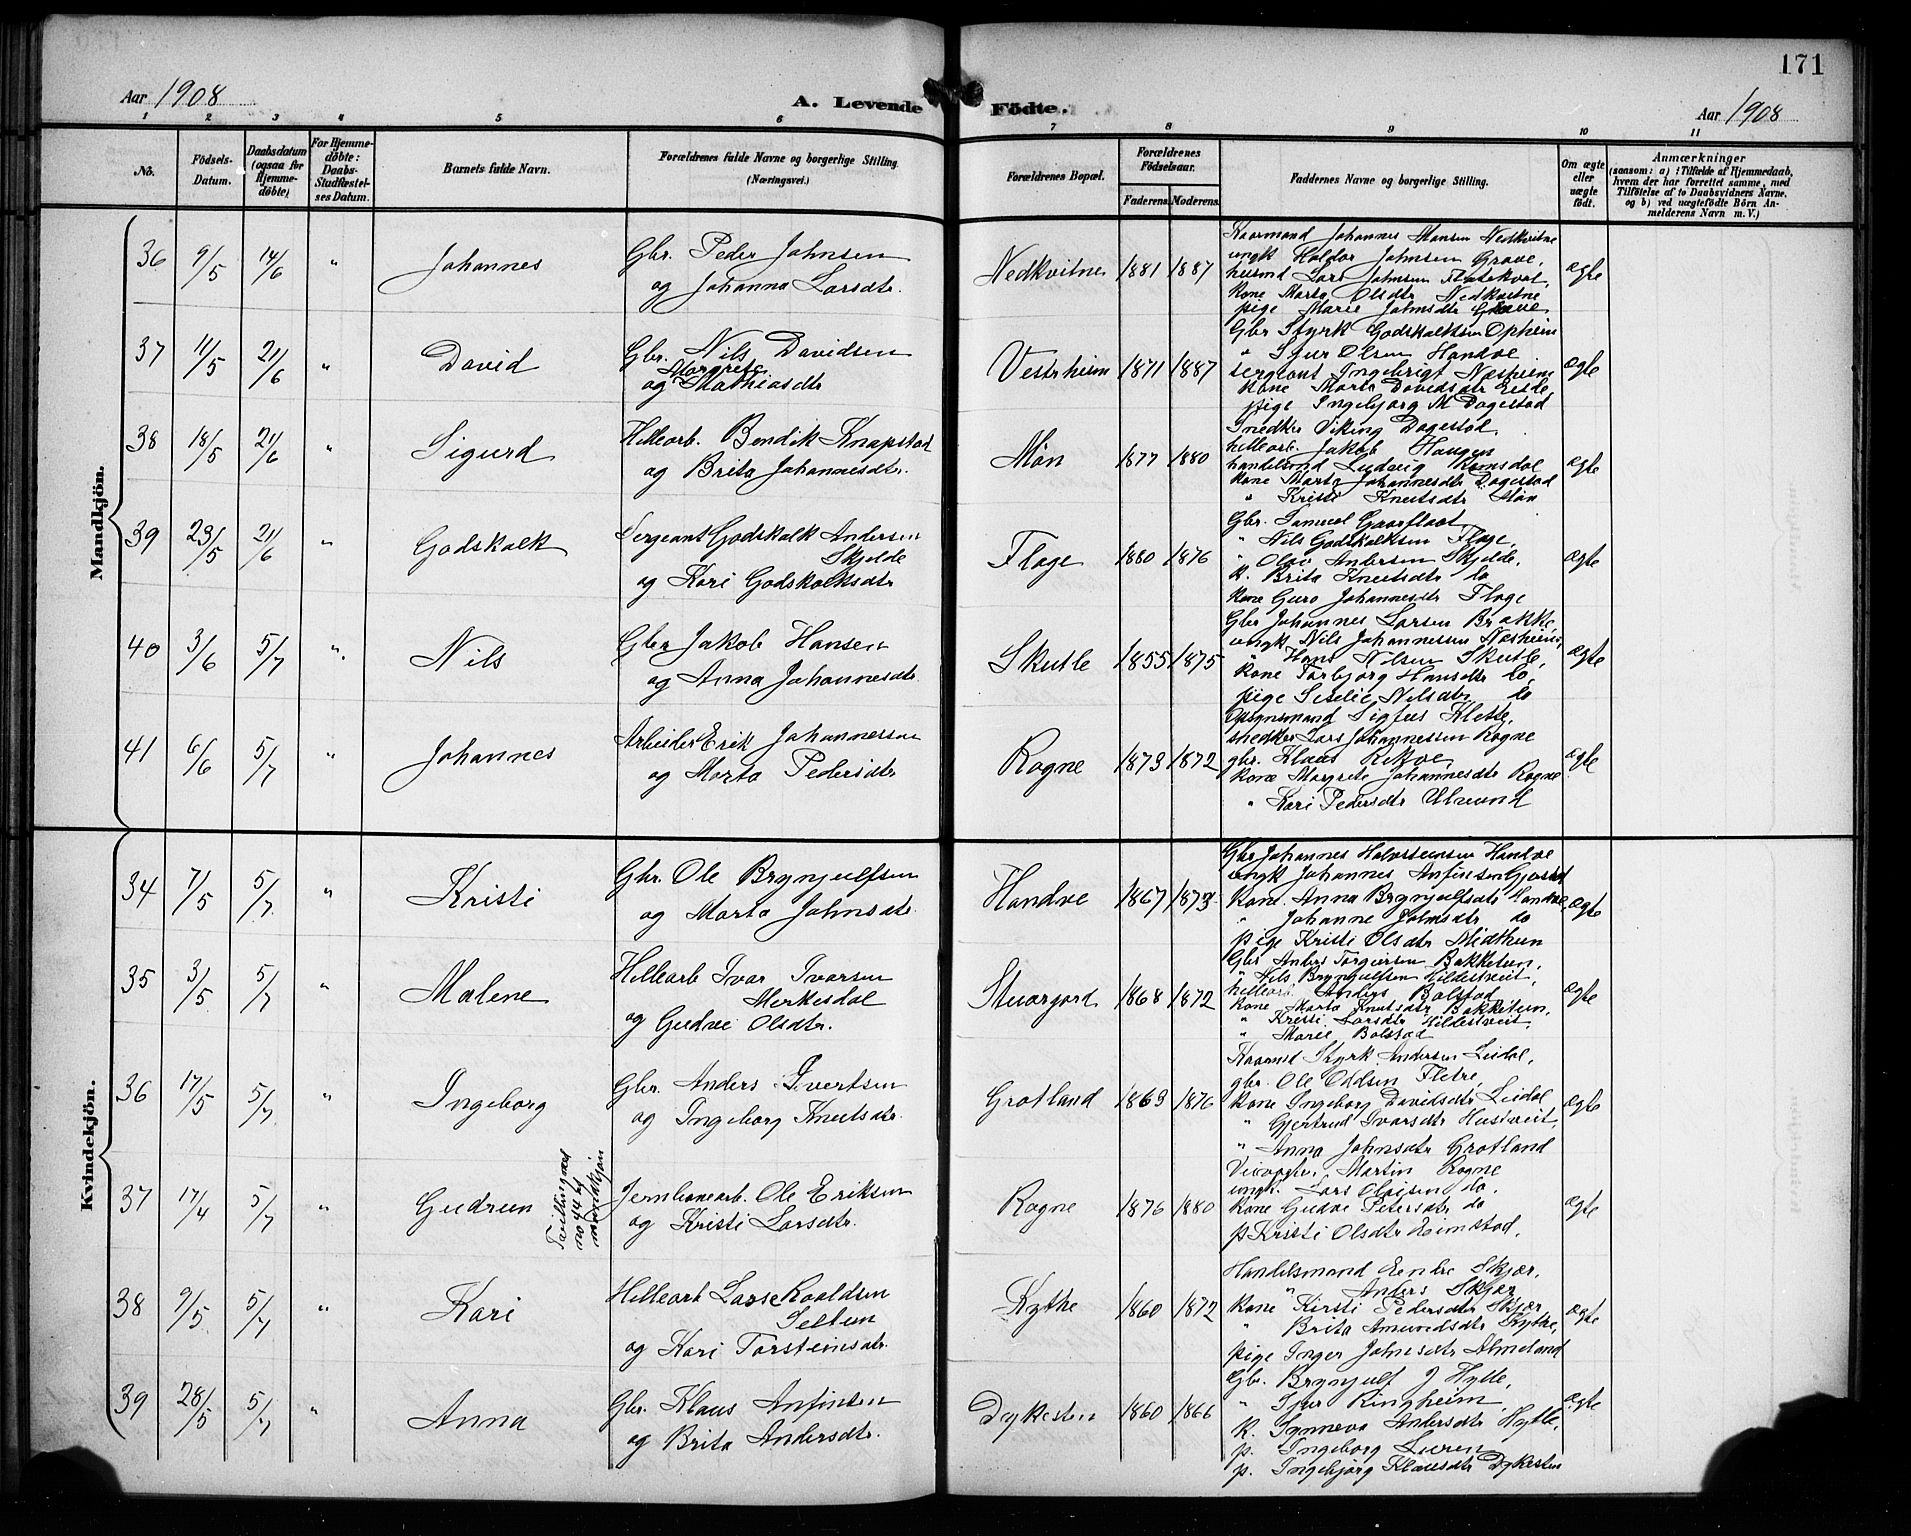 171
Aar 1908 A. Levende Födte. Aar 1908
1 2 3 4 5 6 7 8 9 10 11
No.
Födsels-Datum.
Daabsdatum (ogsaa for Hjemmedöbte)
For Hjemmedöbte: Daabs-Stadfæstelses Datum.
Barnets fulde Navn.
Forældrenes fulde Navne og borgerlige Stilling.
(Næringsvei.)
Forældrenes Bopæl.
Forældrenes Födselsaar.
Faderens. Moderens.
Faddernes Navne og borgerlige Stilling.
Om ægte eller uægte födt.
Anmærkninger
(saasom: a) i Tilfælde af Hjemmedaab, hvem der har forrettet samme, med Tilföielse af to Daabsvidners Navne, og b) ved uægtefödte Börn Anmelderens Navn m. V.)
Mandkjön.
36 9/5 14/6 " Johannes
Gbr. Peder Johnsen
og Johanna Larsdtr.
Nedkvitne 1881 1887
Kaarmand Johannes Monsen Nedkvitne
ungk Haldor Johnsen Grove,
husmd Lars Johnsen
Kone Marta Olsdtr Nedkvitne
pige Marie Johnsdtr Grove
ægte
37 11/5 21/6 " David
Gbr. Nils Davidsen
Margrete
og Mathiasdtr
Vestrheim 1871 1887
Gbr Styrk Godskalksen Opheim
" Sjur Olsen Handve
sergeant Ingebrigt Næsheim
Kone Marta Davidsdtr
pige Ingebjorg M Dagestad
ægte
38 18/5 21/6 " Sigurd
Hellearb. Bendik Knapstad
og Brita Johannesdtr.
Møn 1877 1880
Snedker Viking Dagestad.
hellearb. Jakob Haugen
handelsmd Ludvig Romsdal
Kone Marta Johannesdtr Dagestad
" Kristi Knutsdtr Møn
ægte
39 23/5 21/6 " Godskalk
Sergeant Godskalk Andersen
Skjelde
og Kari Godskalksdtr
Flage 1880 1876
Gbr. Samuel
" Nils Godskalksen Flage,
" Olav Andersen Skjelde.
K. Brita Knutsdtr do
Kone Guro Johannesdtr Flage
ægte
40 3/6 5/7 " Nils
Gbr Jakob Hansen
og Anna Johannesdtr.
Skutle 1855 1875
Gbr Johannes Larsen Brekke,
ungk Nils Johannessen Næsheim,
" Hans Nilsen Skutle,
Kone Torbjorg Hansdtr do,
pige Seselie Nilsdtr do
ægte
41 6/6 5/7 " Johannes
Arbeider Erik Johannessen
og Marta Pedersdtr
Rogne 1873 1872
Opsynsmand Sigfus Klette,
snedker Lars Johannessen Rogne
gbr. Klaus Rekve,
Kone Margrete Johannesdtr Rogne
" Kari Pedersdtr Ulvund
ægte
Kvindekjön.
34 7/5 5/7 " Kristi
Gbr. Ole Brynjulfsen
og Marta Johnsdtr
Handve 1867 1873
Gbr Johannes Halvsteinsen Handve
ungk Johannes Anfinsen
Kone Anna Brynjulfsdtr Handve,
" Johanne Johnsdtr do
pige Kristi Olsdtr Midthun
ægte
35 3/5 5/7 " Malene
Hellearb Ivar Ivarsen
Merkesdal
og Gudve Olsdtr.
1868 1872
Gbr Anders Torgersen Bakketun,
" Nils Brynjulfsen Hildestveit,
hellearb Anders Bolstad
Kone Marta Knutsdtr Bakketun,
" Kristi Larsdtr Hildestveit
" Marie Bolstad
ægte
36 17/5 5/7 " Ingeborg
Gbr. Anders Ivertsen
og Ingeborg Knutsdtr.
Grotland 1863 1876
Kaarmd Styrk Andersen Lidal,
gbr. Ole Oddsen Fletre,
Kone Ingeborg Davidsdtr Lidal
" Gjertrud Ivarsdtr Hustveit
" Anna Johnsdtr Grotland
ægte
37 17/4 5/7 " Gudrun
Tvilling med no 44 af mandkjøn
Jernbanearb. Ole Eriksen
og Kristi Larsdtr.
Rogne 1876 1880
Martin Rogne
ungk. Lars Olaisen do.
Kone Gudve Petersdtr do
p Kristi Olsdtr Eimstad,
ægte
38 9/5 5/7 " Kari
Hellearb Lasse Roaldsen
Seltun
og Kari Torsteinsdtr.
Kythe 1860 1872
Handelsmand Endre Skjær,
" Anders Skjær
Kone Kirsti Pedersdtr Skjær
" Brita Amundsdtr Kythe,
pige Inger Johnsdtr Almeland
ægte
39 28/5 5/7 " Anna
Gbr. Klaus Anfinsen
og Brita Andersdtr.
Dykesten 1860 1866
Gbr. Brynjulf J Hylle,
" Sjur Ringheim
K. Synneva Andersdtr Hylle,
p. Ingeborg Luren
p. Ingebjorg Klausdtr Dykesten
ægte